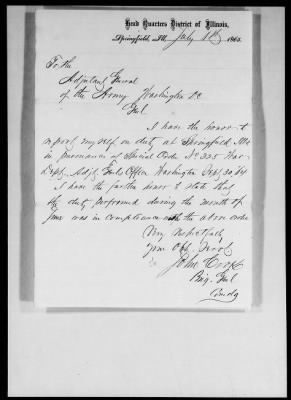 Head Quarters District of Illinois,
Springfield, Ill. July 1st 1865.
To the
Adjutant General
of the Army Washington D.C.
Genl
I have the honor to
report myself on duty at Springfield Ills
in pursuance of Special Order No 325 War
Dept. Adjt. Genls Office Washington Sept 30 64
I have the further honor to state that
the duty performed during the month of
June was in compliance with the above order
Very Respectfully
Your Obt. Servt
John Cook
Brig. Genl
Comdg